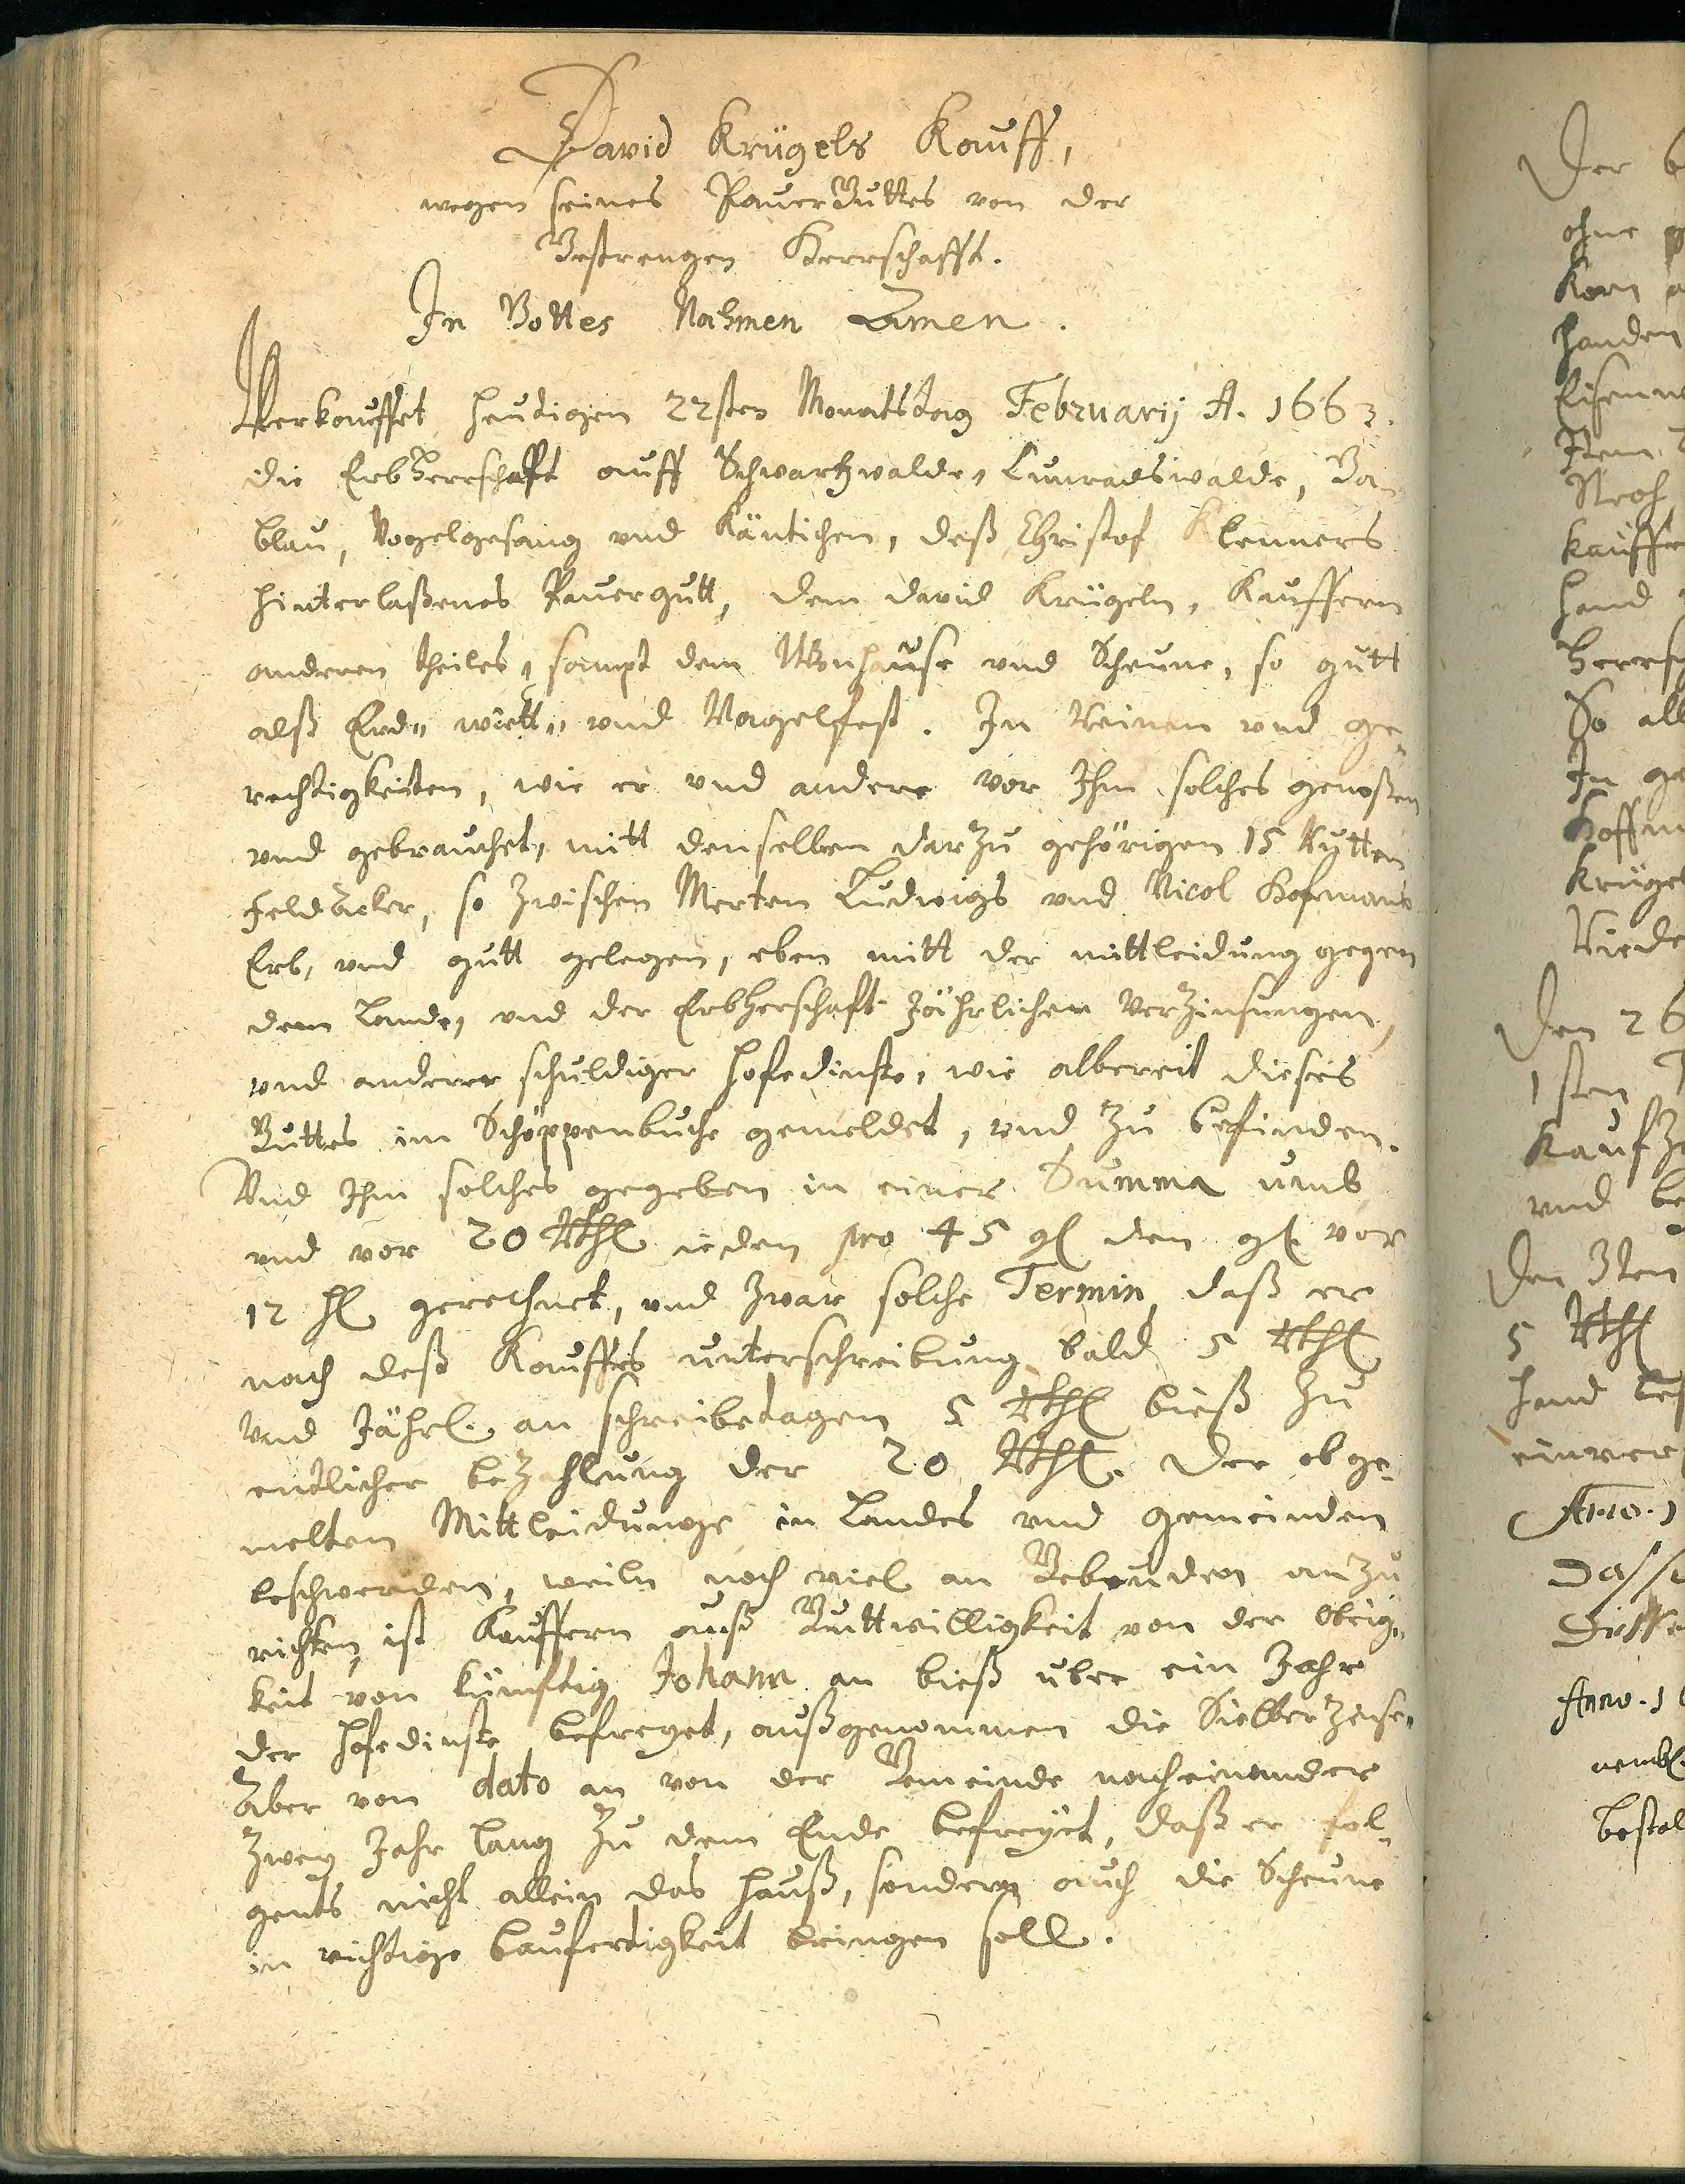 David Krügels Kauff,
wegen seines PauerGuttes von der
Gestrengen Herrschafft.
In Gottes Nahmen Amen.
Verkauffet heudigen 22sten Monatstag Februarij A. 1663.
die Erbherrschafft auff Schwartzwalde, Cunradswalde, Ga-
blau, Vogelgesang vnd Käntichen, deß Christof Klenners
hinterlaßenes Pauergutt, dem David Krügeln, Kauffern
anderen theiles, sampt dem Wonhause vnd Scheune, so gutt
alß Erd„ wiett„ vnd Nagelfest. In Reinen vnd ge„
rechtigkeiten, wie er vnd andere vor Ihm solches genoßen
vnd gebrauchet, mitt denselben darzu gehörigen 15 Rutten
Feldäcker, so zwischen Merten Ludwigs vnd Nicol Hofmans
Erb, vnd gutt gelegen, eben mitt der mittleidung gegen
dem Lande, vnd der Erbherschafft Jährlichen Verzinsungen,
vnd anderer schuldiger Hofedinste, wie albereit dieses
Guttes im Schöppenbuche gemeldet, vnd zu befinden.
Vnd Ihm solches gegeben in einer Summa umb
vnd vor 20 Rthl ieden pro 45 gl den gl vor
12 hl gerechnet, vnd zwar solche Termin, daß er
nach deß Kauffes unterschreibung bald 5 Rthl
Vnd Jährl. an schreibetagen 5 Rthl bieß zu
entlicher bezahlung der 20 Rthl. Der obge„
melten Mittleidunge in Landes vnd gemeinden
beschwerden, weiln noch viel an Gebeuden anzu
richten, ist Kauffern auß Guttwilligkeit von der Obrig„
keit von künfftig Johann an bieß über ein Jahr
der Hofedinste befreyet, außgenommen die Sielberzinse,
Aber von dato an von der Gemeinde nacheinander
zwey Jahr lang zu dem Ende befreyet, daß er fol„
gents nicht allein das Hauß, sondern auch die Scheune
in richtige baufertigkeit bringen soll.
Der
ohne
Korn
handen
Item
Noch
kauffe
hand
Herrsch
So all
In ge
Hoffm
Krügel
Den 26
1sten
Kaufze
vnd be
Den 3ten
5 Rthl
hand
einer
Anno. 1
Dasse
Anno. 1
nembl.